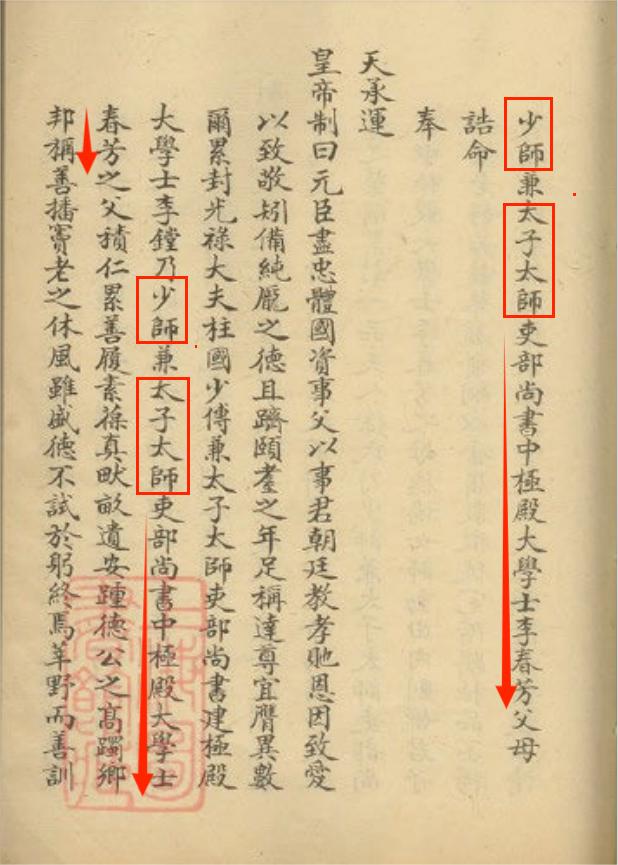 少師兼太子太師吏部尚書中極殿大學士李春芳父母
誥命
奉
天承運
皇帝制曰元臣盡忠體國資事父以事君朝廷教孝貤恩因致愛
以致敬矧備純龐之德且躋頤耋之年足稱達尊宜膺異數
爾累封光祿大夫柱國少傅兼太子太師吏部尚書建極殿
大學士李鏜乃少師兼太子太師吏部尚書中極殿大學士
春芳之父積仁累善履素葆真畎畝遺安踵德公之高躅鄉
邦稱善播竇老之休風雖盛德不試於躬終焉革野而善訓